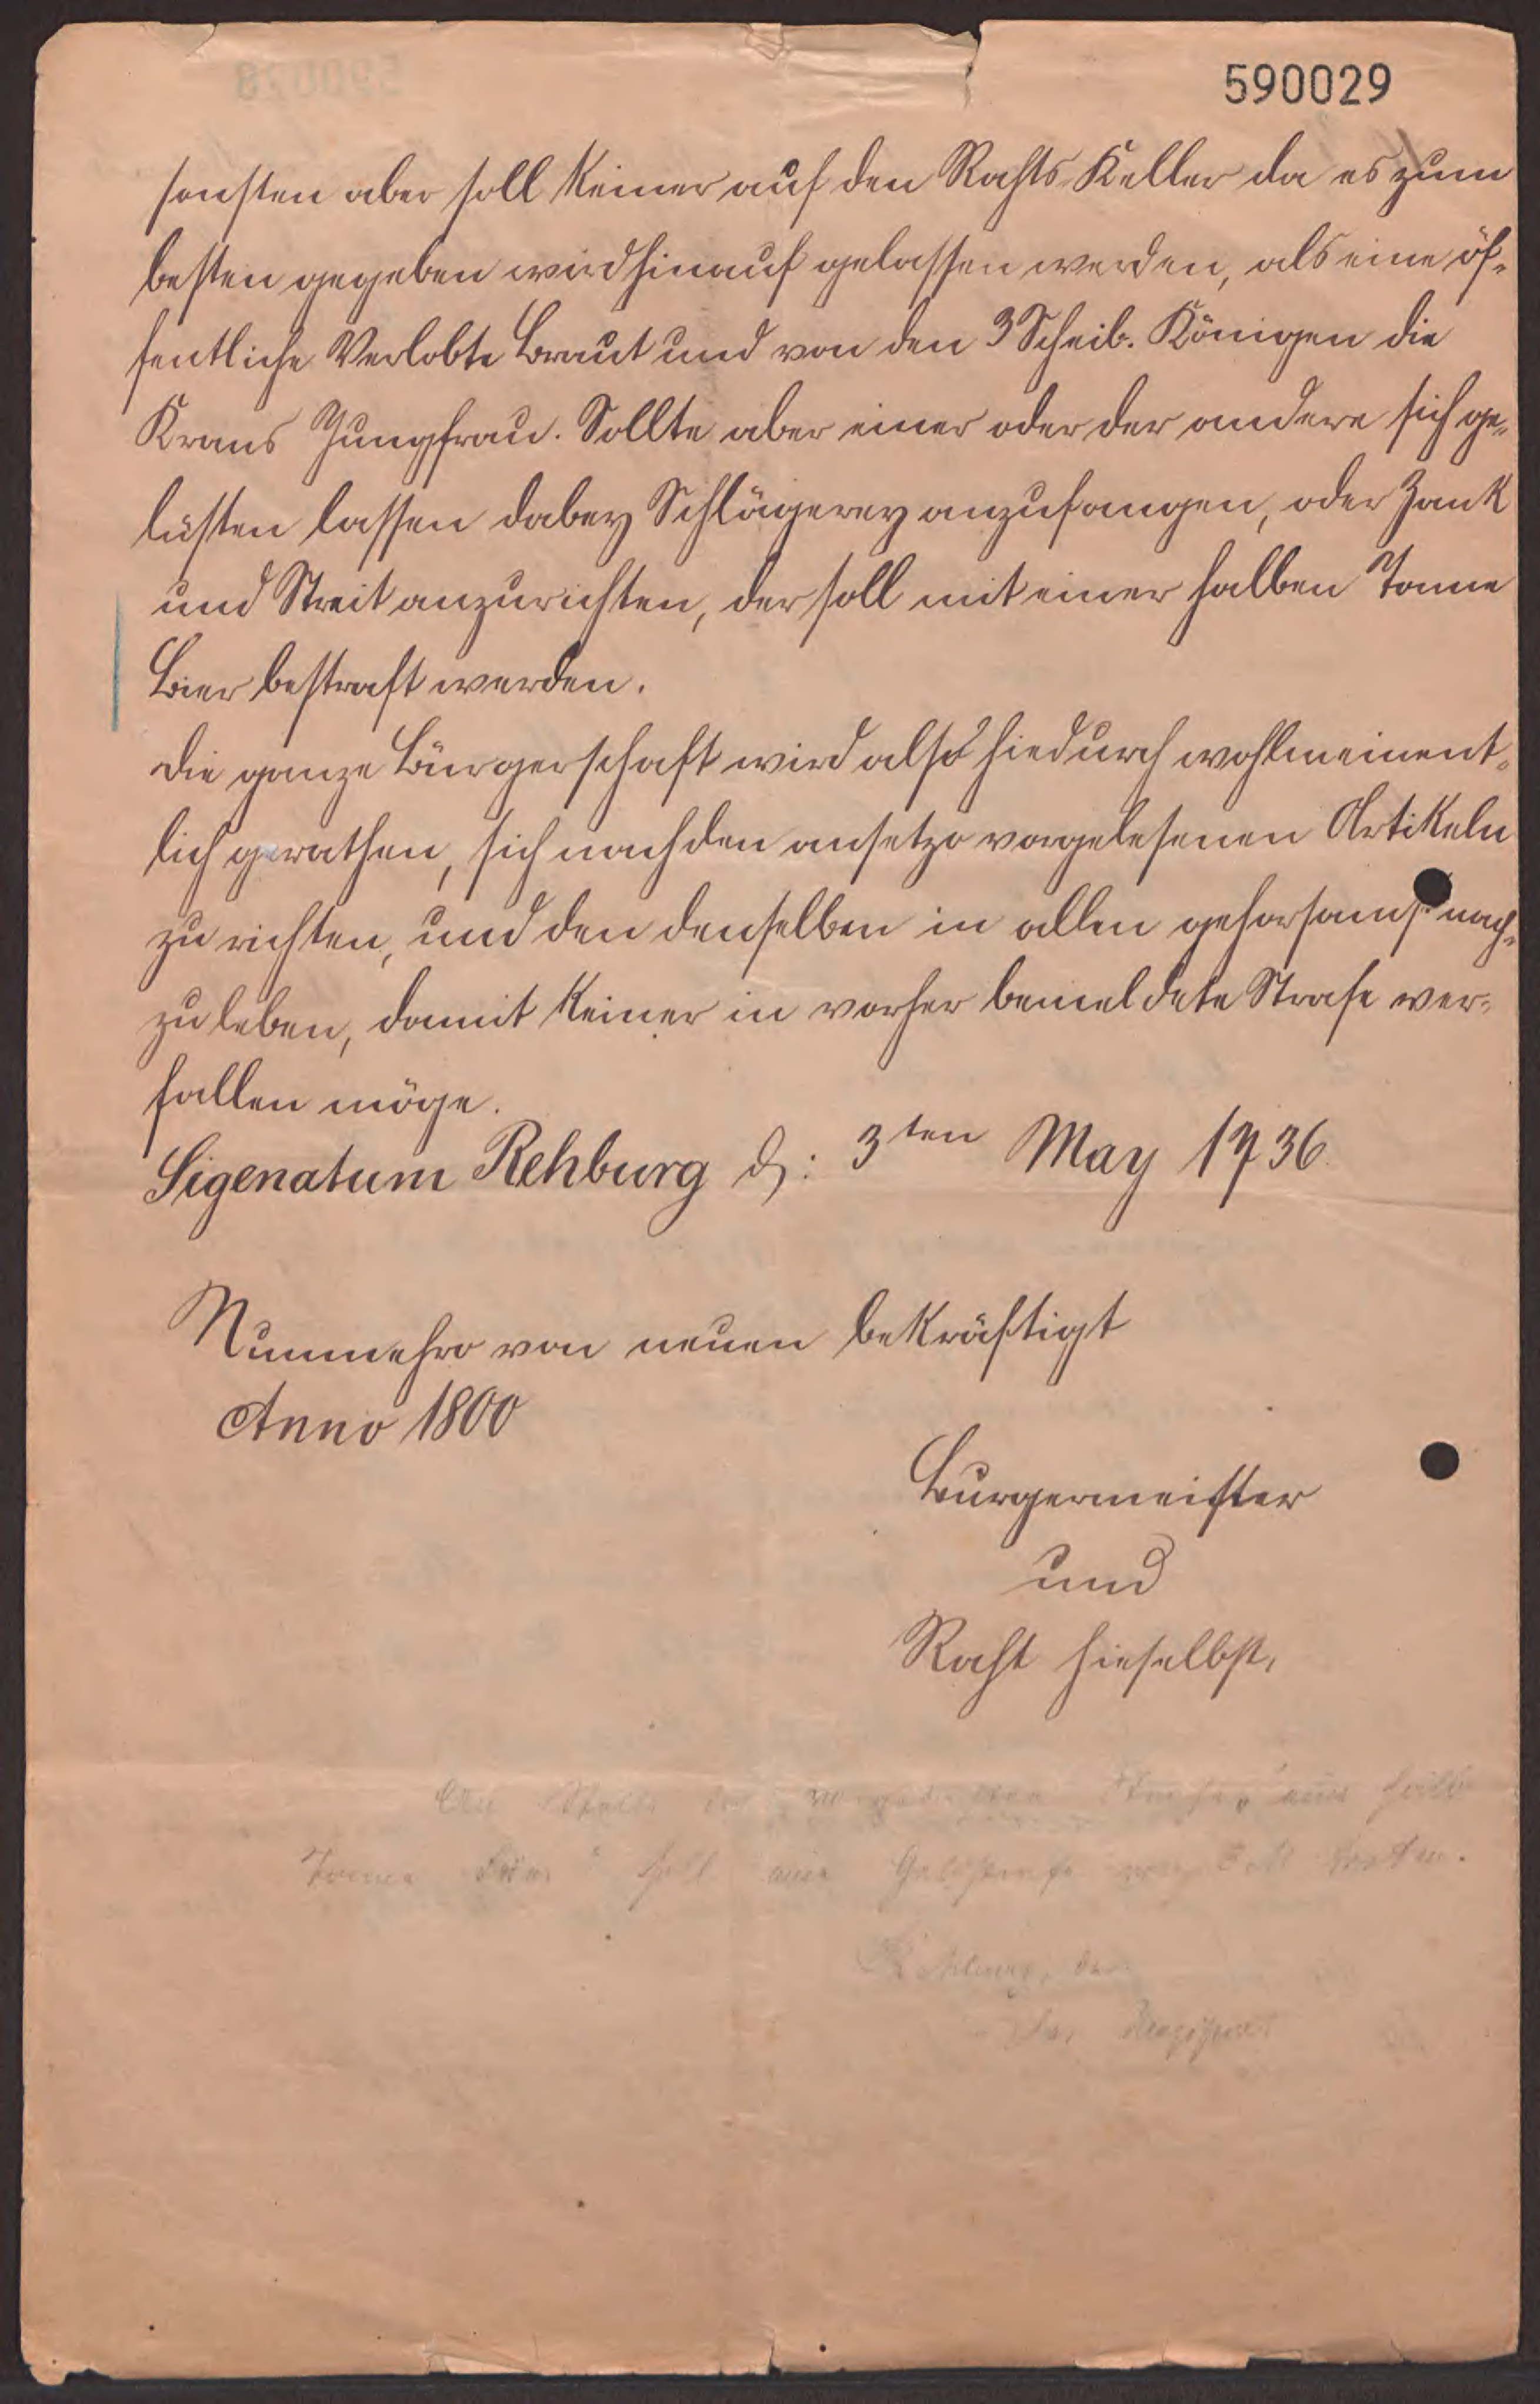 590029
sonsten aber soll keiner auf den Rahts-Keller da es zum
besten gegeben wird hinauf gelassen werden, als eine öf-
fentliche Verlobte Braut und von den 3 Scheib. Königen die
Krans Jungfrau. Sollte aber einer oder der andere sich ge-
lüsten lassen dabey Schlägerey anzufangen, oder Zank
und Streit anzurichten, der soll mit einer halben Tonne
Bier bestraft werden.
Die ganze Bürgerschaft wird also hiedurch wohlmeinent-
lich gerathen, sich nach den ansetzo vorgelesenen Artikeln
zu richten, und den denselben in allen gehorsamst nach-
zu leben, damit keiner in vorher bemeldete Strafe ver-
fallen möge.
Sigenatum Rehburg d: 3ten May 1736
Nunmehro von neuen bekräftigt
Anno 1800
Burgermeister
und
Raht hieselbst,
An Stelle der Strafe, eine halbe
Tonne Bier" soll eine Geldstrafe von treten.
Rehburg, den
Der Magistrat